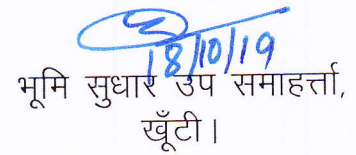 18/10/19
भूमि सुधार उप समाहर्त्ता,
खूँटी।